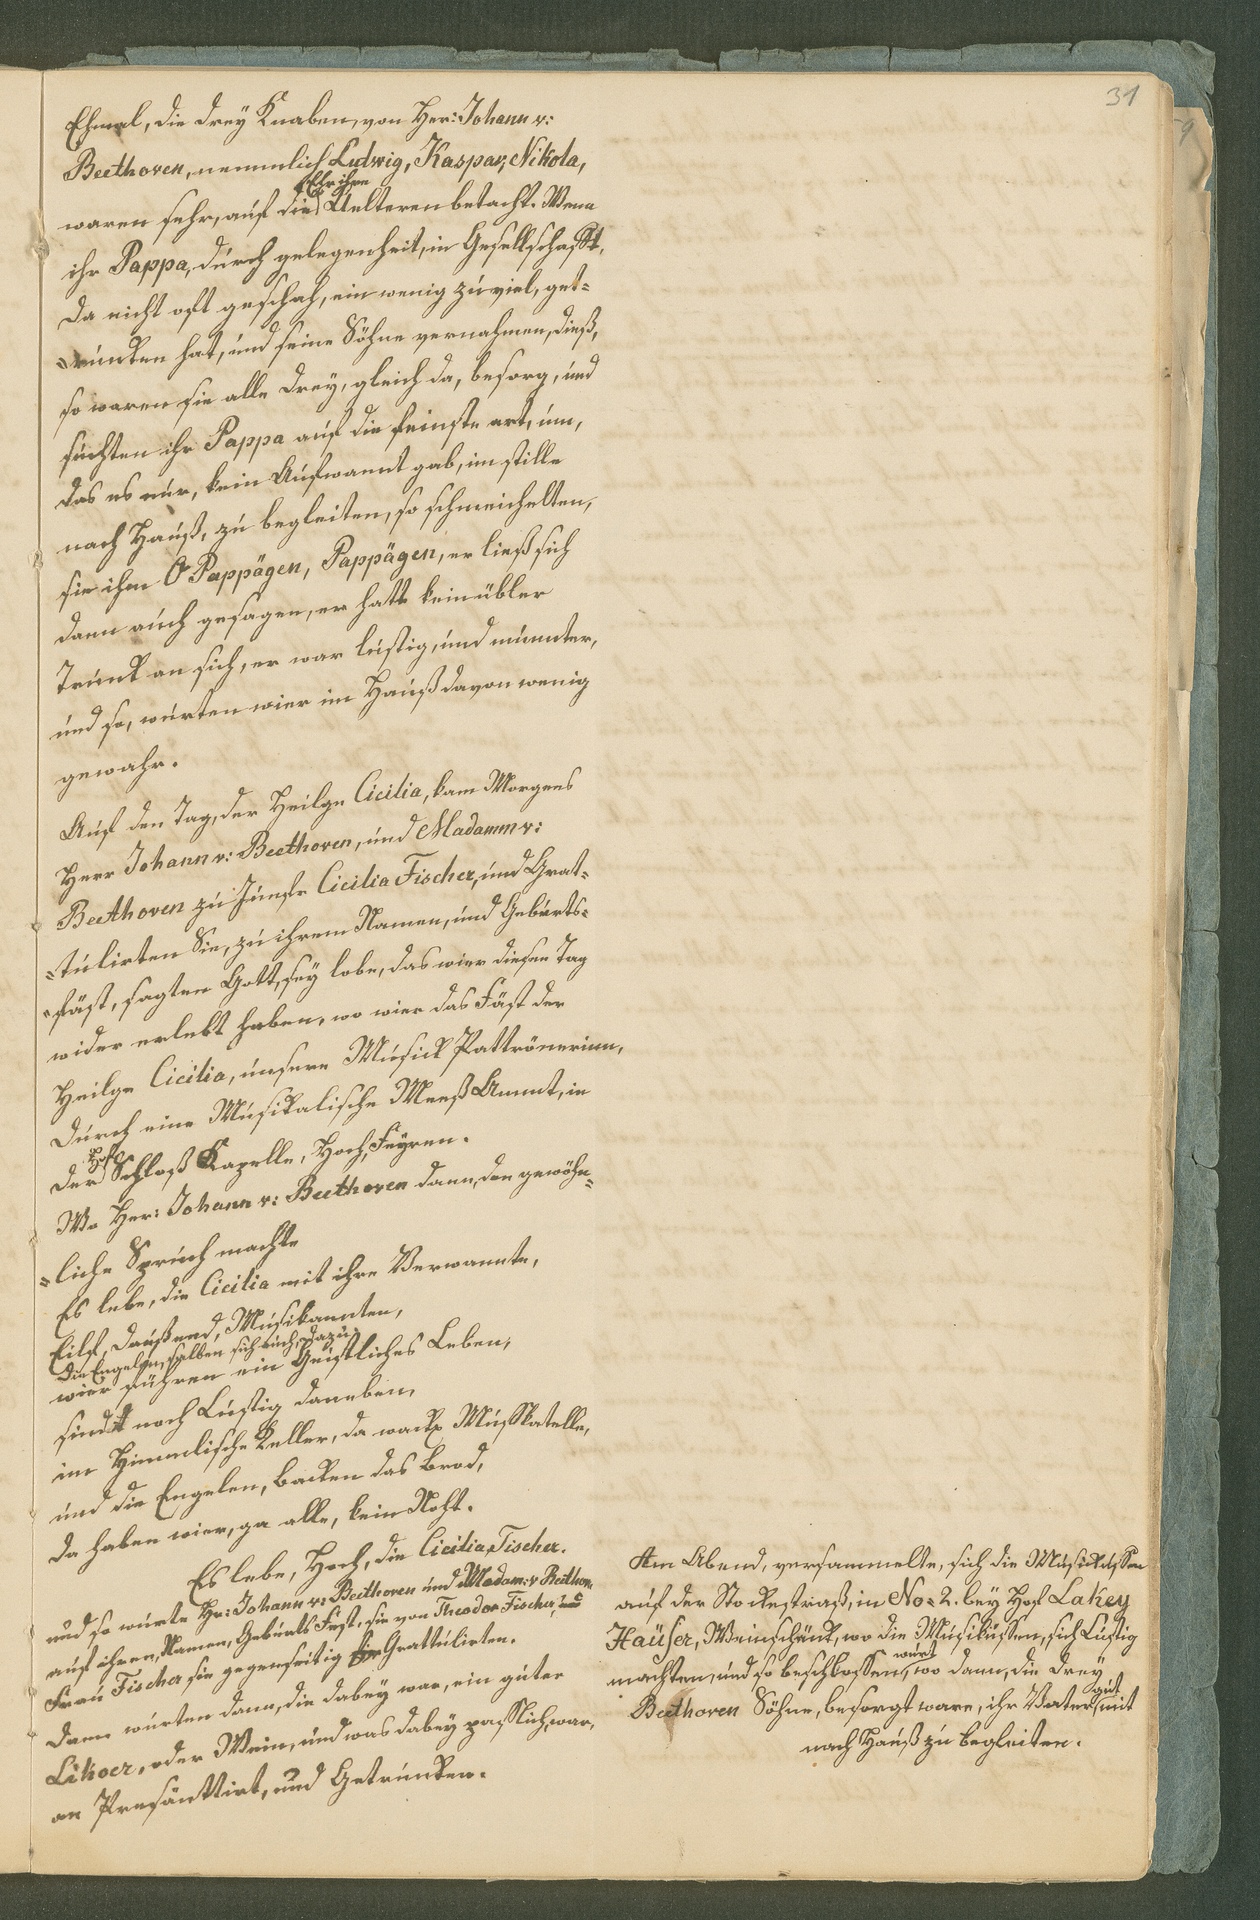 31
Ehmal, die drey Knaben, von Her: Johann v:
Beethoven, nemmlich Ludwig, Kaspar, Nikola,
waren sehr, auf die Ehr ihre Aelteren betacht. Wenn
ihr Pappa, durch gelegenheit, in Gesellschafft,
da nicht oft geschah, ein wenig zu viel, get=
=runken hat, und seine Söhne vernahmen, dieß,
so waren sie alle drey, gleich da, besorg, und
suchten ihr Pappa auf die feinste art, um,
das es nur, kein Aufwannt gab, im stille
nach Hauß, zu begleiten, so schmeichelten,
sie ihm O Pappägen, Pappägen, er ließ sich
dann auch gesagen, er hatte kein übler
Trunk an sich, er war lustig, und munnter,
und so, wurten wier im Hauß davon wenig
gewahr.
Auf den Tag, der Heilge Cicilia, kam Morgens
Herr Johann v: Beethoven, und Madamm v:
Beethoven zu Junfr Cicilia Fischer, und Grat=
=tulirten Sie, zu ihrem Namen, und Geburts=
=fäst, sagten Gott, sey lobe, das wier diesen Tag
wider erlebt haben, wo wier das Fäst der
Heilge Cicilia, unsere Musick Pattrönerinn,
durch eine Musikalische Meeß Ammt, in
der Hof Schloß Kapelle, Hoch, Feyren.
Wo Her: Johann v: Beethoven dann, den gewöhn=
=liche Spruch machte
Es lebe, die Cicilia mit ihre Verwannte,
Eilf, daußend, Musikannten,
die Engelen, salben sich auch, dazu
wier führen ein Geistliches Leben,
sind noch Lustig daneben,
im Himmlische Keller, da wachs Musskatelle,
und die Engelen, backen das brod,
da haben wier, ga alle, kein Noht.
Es lebe, Hoch, die Cicilia Fischer.
und so wurte Hr: Johann v: Beethoven und Madam: v Beethoven
auf ihren, Namen, Geburts Fest, sie von Theodor Fischer, und
Frau Fischer sie gegenseitig Grattulirten.
dann wurten dann, die dabey war, ein guter
Likoer, oder Wein, und was dabey passlich, war,
an Presänttirt, und Getrunken.
Am Abend, versammelte, sich die Musikussen
auf der Stockestraß, in No= 2. bey Hof Lakey
Haüser, Weinschänk, wo die Musikussen, sich Lustig
machten, und so beschlossen, wurt wo dann, die drey
Beethoven Söhne, besorgt ware, ihr Vater, gut mit
nach Hauß zu begleiten.